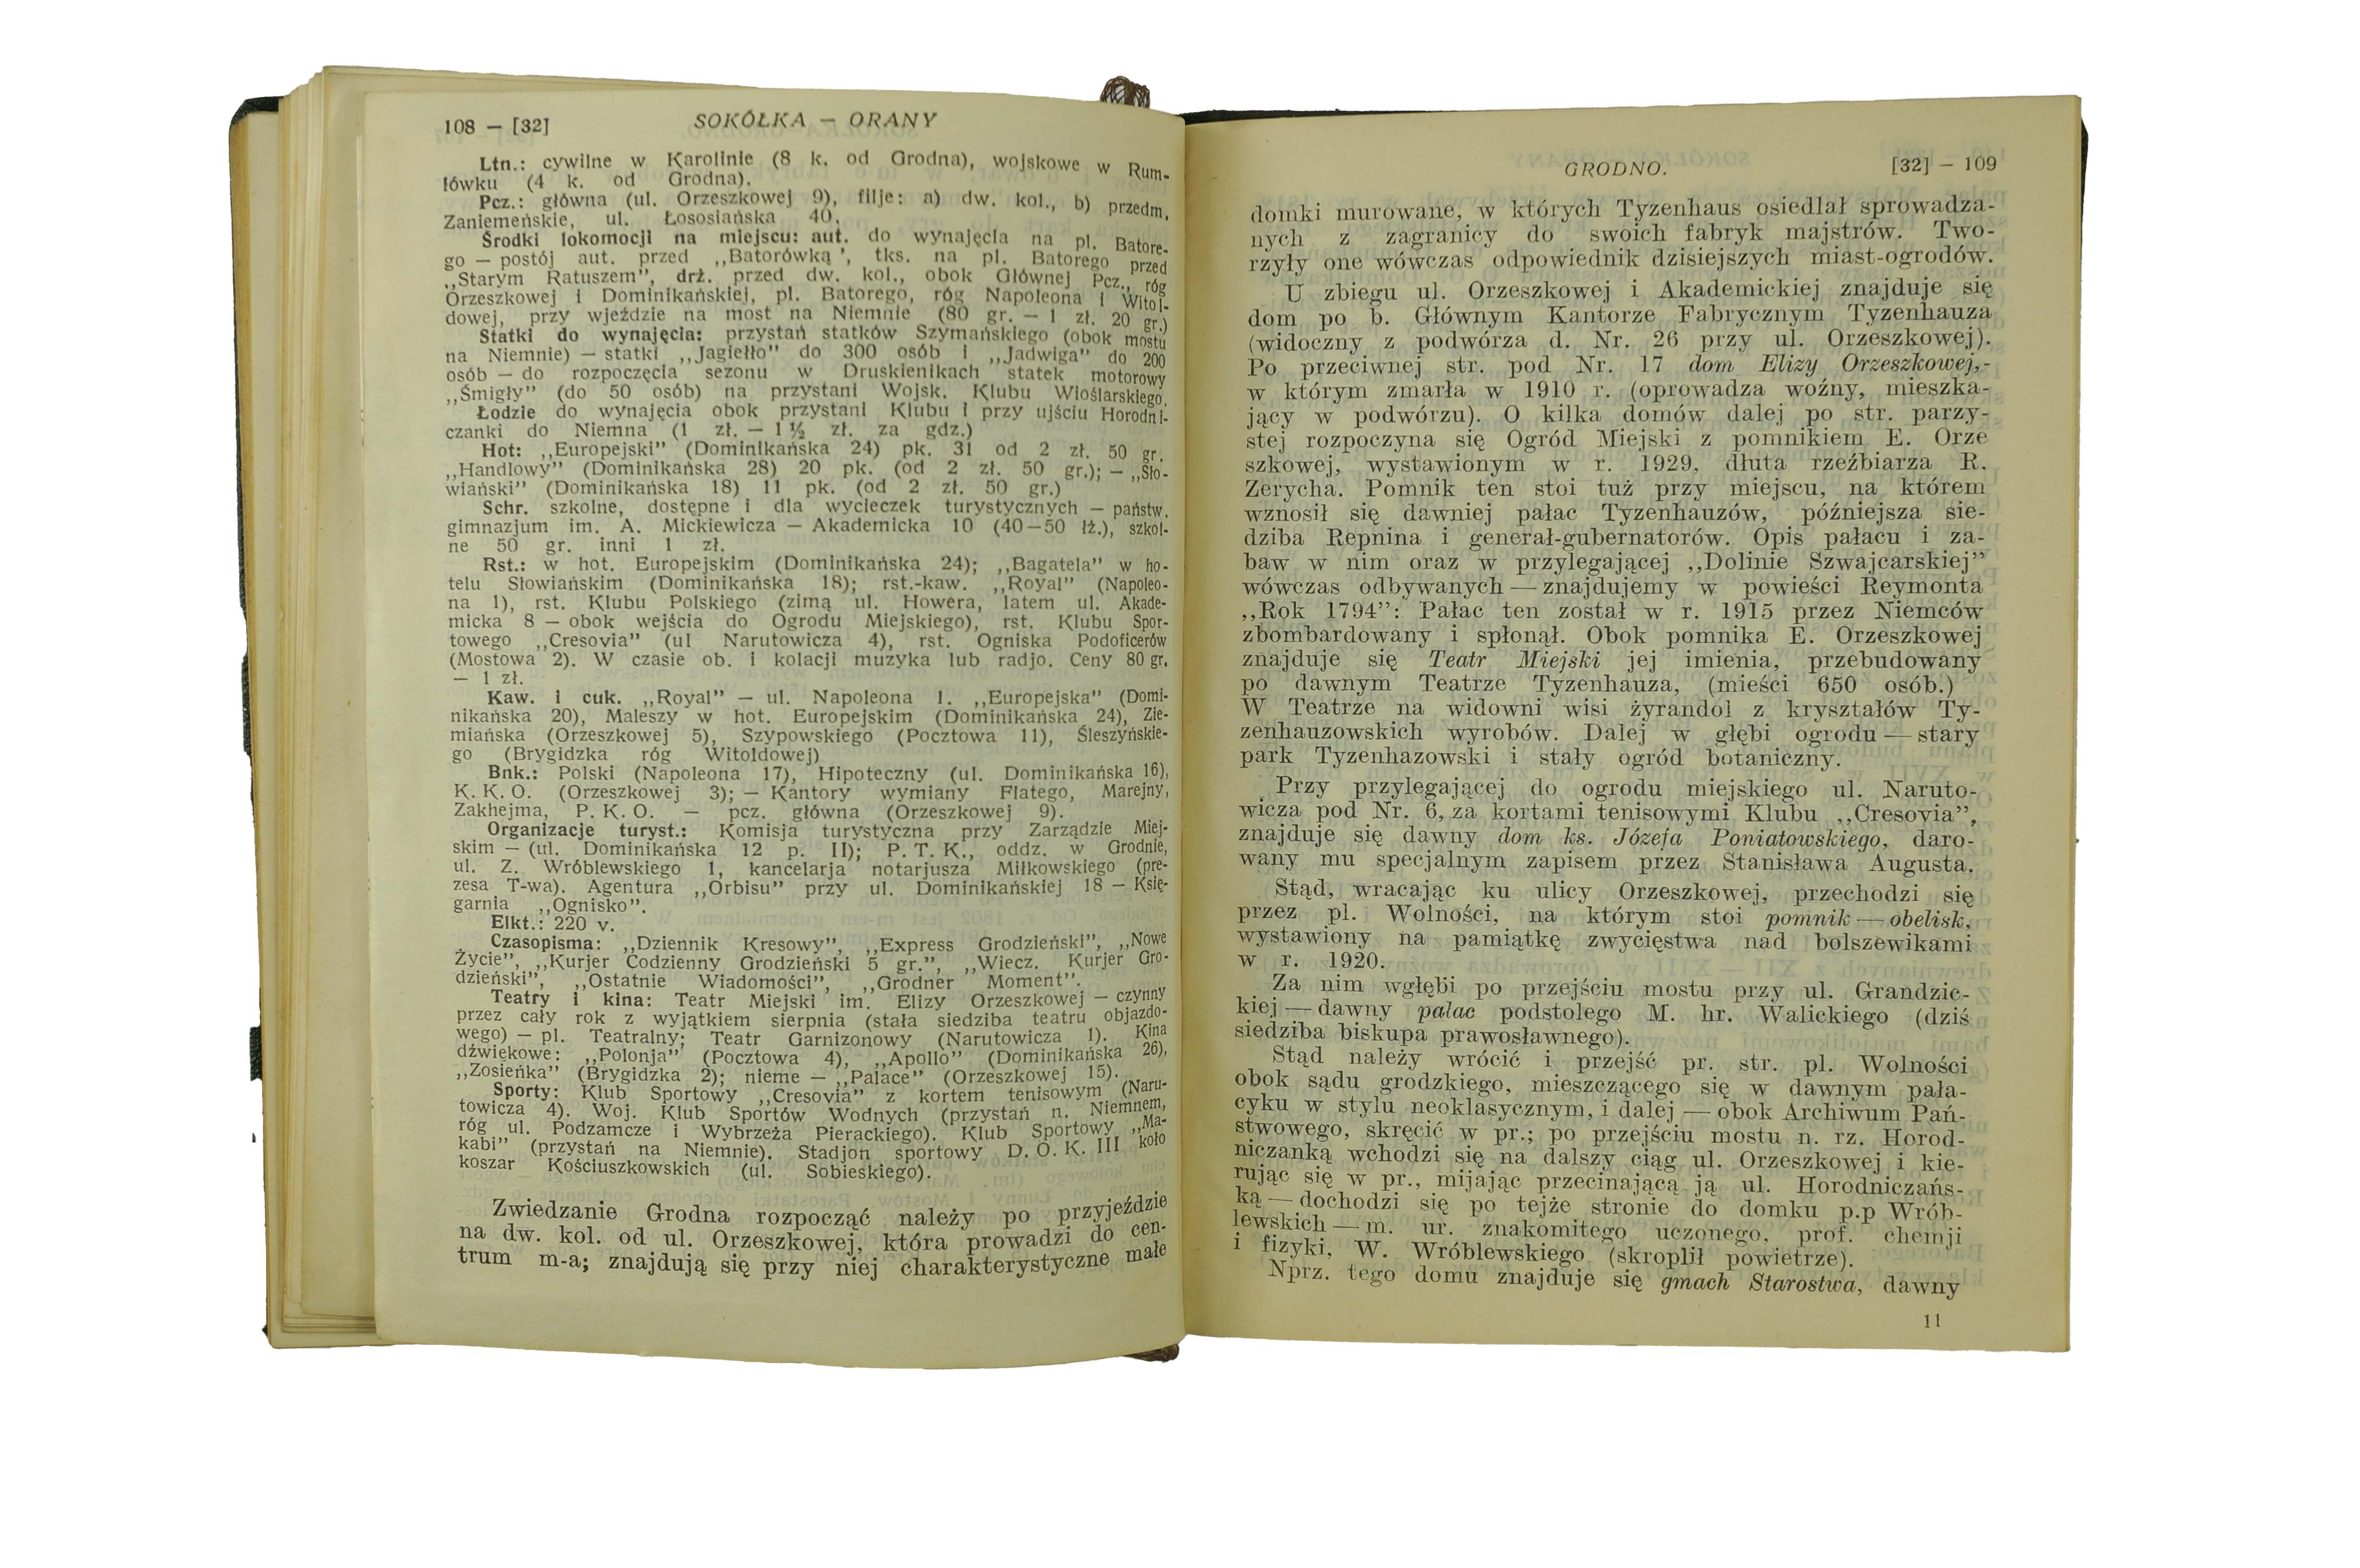 108 — [32]
SOKÓŁKA — ORANY
Ltn.: cywilne w Karolinie (8 k. od Grodna), wojskowe w Rum-
lówku (4 k. od Grodna).
Pcz.: główna (ul. Orzeszkowej 9), filje: a) dw. kol., b) przedm.
Zaniemeńskie, ul. Łososiańska 40.
Środki lokomocji na miejscu: aut. do wynajęcia na pl. Batore-
go — postój aut. przed ,,Batorówką ', tks. na pl. Batorego przed
,,Starym Ratuszem”, drż. przed dw. kol., obok Głównej Pcz., róg
Orzeszkowej i Dominikańskiej, pl. Batorego, róg Napoleona i Witol-
dowej, przy wjeździe na most na Niemnie (80 gr. — 1 zł. 20 gr.)
Statki do wynajęcia: przystań statków Szymańskiego (obok mostu
na Niemnie) — statki ,,Jagiełło” do 300 osób i ,,Jadwiga” do 200
osób — do rozpoczęcia sezonu w Druskienikach statek motorowy
,,Śmigły” (do 50 osób) na przystani Wojsk. Klubu Wioślarskiego.
Łodzie do wynajęcia obok przystani Klubu i przy ujściu Horodni-
czanki do Niemna (1 zł. — 1 ½ zł. za gdz.)
Hot: ,,Europejski” (Dominikańska 24) pk. 31 od 2 zł. 50 gr.
,,Handlowy” (Dominikańska 28) 20 pk. (od 2 zł. 50 gr.); — ,,Sło-
wiański” (Dominikańska 18) 11 pk. (od 2 zł. 50 gr.)
Schr. szkolne, dostępne i dla wycieczek turystycznych — państw.
gimnazjum im. A. Mickiewicza — Akademicka 10 (40—50 łż.), szkol-
ne 50 gr. inni 1 zł.
Rst.: w hot. Europejskim (Dominikańska 24); ,,Bagatela” w ho-
telu Słowiańskim (Dominikańska 18); rst.-kaw. ,,Royal” (Napoleo-
na 1), rst. Klubu Polskiego (zimą ul. Howera, latem ul. Akade-
micka 8 — obok wejścia do Ogrodu Miejskiego), rst. Klubu Spor-
towego ,,Cresovia” (ul Narutowicza 4), rst. Ogniska Podoficerów
(Mostowa 2). W czasie ob. i kolacji muzyka lub radjo. Ceny 80 gr.
— 1 zł.
Kaw. i cuk. ,,Royal” — ul. Napoleona 1. ,,Europejska” (Domi-
nikańska 20), Maleszy w hot. Europejskim (Dominikańska 24), Zie-
miańska (Orzeszkowej 5), Szypowskiego (Pocztowa 11), Śleszyńskie-
go (Brygidzka róg Witoldowej)
Bnk.: Polski (Napoleona 17), Hipoteczny (ul. Dominikańska 16),
K. K. O. (Orzeszkowej 3); — Kantory wymiany Flatego, Marejny,
Zakhejma, P. K. O. — pcz. główna (Orzeszkowej 9).
Organizacje turyst.: Komisja turystyczna przy Zarządzie Miej-
skim — (ul. Dominikańska 12 p. II); P. T. K., oddz. w Grodnie,
ul. Z. Wróblewskiego 1, kancelarja notarjusza Miłkowskiego (pre-
zesa T-wa). Agentura ,,Orbisu” przy ul. Dominikańskiej 18 — Księ-
garnia ,,Ognisko”.
Elkt.: 220 v.
Czasopisma: ,,Dziennik Kresowy”, ,,Express Grodzieński”, ,,Nowe
Życie”, ,,Kurjer Codzienny Grodzieński 5 gr.”, ,,Wiecz. Kurjer Gro-
dzieński”, ,,Ostatnie Wiadomości”, ,,Grodner Moment”.
Teatry i kina: Teatr Miejski im. Elizy Orzeszkowej — czynny
przez cały rok z wyjątkiem sierpnia (stała siedziba teatru objazdo-
wego) — pl. Teatralny; Teatr Garnizonowy (Narutowicza 1). Kina
dźwiękowe: ,,Polonja” (Pocztowa 4), ,,Apollo” (Dominikańska 26),
,,Zosieńka” (Brygidzka 2); nieme — ,,Palace” (Orzeszkowej 15).
Sporty: Klub Sportowy ,,Cresovia” z kortem tenisowym (Naru-
towicza 4). Woj. Klub Sportów Wodnych (przystań n. Niemnem,
róg ul. Podzamcze i Wybrzeża Pierackiego). Klub Sportowy ,,Ma-
kabi” (przystań na Niemnie). Stadjon sportowy D. O. K. III koło
koszar Kościuszkowskich (ul. Sobieskiego).
Zwiedzanie Grodna rozpocząć należy po przyjeździe
na dw. kol. od ul. Orzeszkowej, która prowadzi do cen-
trum m-a; znajdują się przy niej charakterystyczne małe
GRODNO.
[32] — 109
domki murowane, w których Tyzenhaus osiedlał sprowadza-
nych z zagranicy do swoich fabryk majstrów. Two-
rzyły one wówczas odpowiednik dzisiejszych miast-ogrodów.
U zbiegu ul. Orzeszkowej i Akademickiej znajduje się
dom po b. Głównym Kantorze Fabrycznym Tyzenhauza
(widoczny z podwórza d. Nr. 26 przy ul. Orzeszkowej).
Po przeciwnej str. pod Nr. 17 dom Elizy Orzeszkowej,-
w którym zmarła w 1910 r. (oprowadza woźny, mieszka-
jący w podwórzu). O kilka domów dalej po str. parzy-
stej rozpoczyna się Ogród Miejski z pomnikiem E. Orze
szkowej, wystawionym w r. 1929, dłuta rzeźbiarza R.
Zerycha. Pomnik ten stoi tuż przy miejscu, na którem
wznosił się dawniej pałac Tyzenhauzów, późniejsza sie-
dziba Repnina i generał-gubernatorów. Opis pałacu i za-
baw w nim oraz w przylegającej ,,Dolinie Szwajcarskiej”
wówczas odbywanych — znajdujemy w powieści Reymonta
,,Rok 1794”: Pałac ten został w r. 1915 przez Niemców
zbombardowany i spłonął. Obok pomnika E. Orzeszkowej
znajduje się Teatr Miejski jej imienia, przebudowany
po dawnym Teatrze Tyzenhauza, (mieści 650 osób.)
W Teatrze na widowni wisi żyrandol z kryształów Ty-
zenhauzowskich wyrobów. Dalej w głębi ogrodu — stary
park Tyzenhazowski i stały ogród botaniczny.
Przy przylegającej do ogrodu miejskiego ul. Naruto-
wicza pod Nr. 6, za kortami tenisowymi Klubu ,,Cresovia”,
znajduje się dawny dom ks. Józefa Poniatowskiego, daro-
wany mu specjalnym zapisem przez Stanisława Augusta.
Stąd, wracając ku ulicy Orzeszkowej, przechodzi się
przez pl. Wolności, na którym stoi pomnik — obelisk,
wystawiony na pamiątkę zwycięstwa nad bolszewikami
w r. 1920.
Za nim wgłębi po przejściu mostu przy ul. Grandzic-
kiej — dawny pałac podstolego M. hr. Walickiego (dziś
siedziba biskupa prawosławnego).
Stąd należy wrócić i przejść pr. str. pl. Wolności
obok sądu grodzkiego, mieszczącego się w dawnym pała-
cyku w stylu neoklasycznym, i dalej — obok Archiwum Pań-
stwowego, skręcić w pr.; po przejściu mostu n. rz. Horod-
niczanką wchodzi się na dalszy ciąg ul. Orzeszkowej i kie-
rując się w pr., mijając przecinającą ją ul. Horodniczańs-
ką — dochodzi się po tejże stronie do domku p.p Wrób-
lewskich — m. ur. znakomitego uczonego, prof. chemji
i fizyki, W. Wróblewskiego (skroplił powietrze).
Nprz. tego domu znajduje się gmach Starostwa, dawny
11